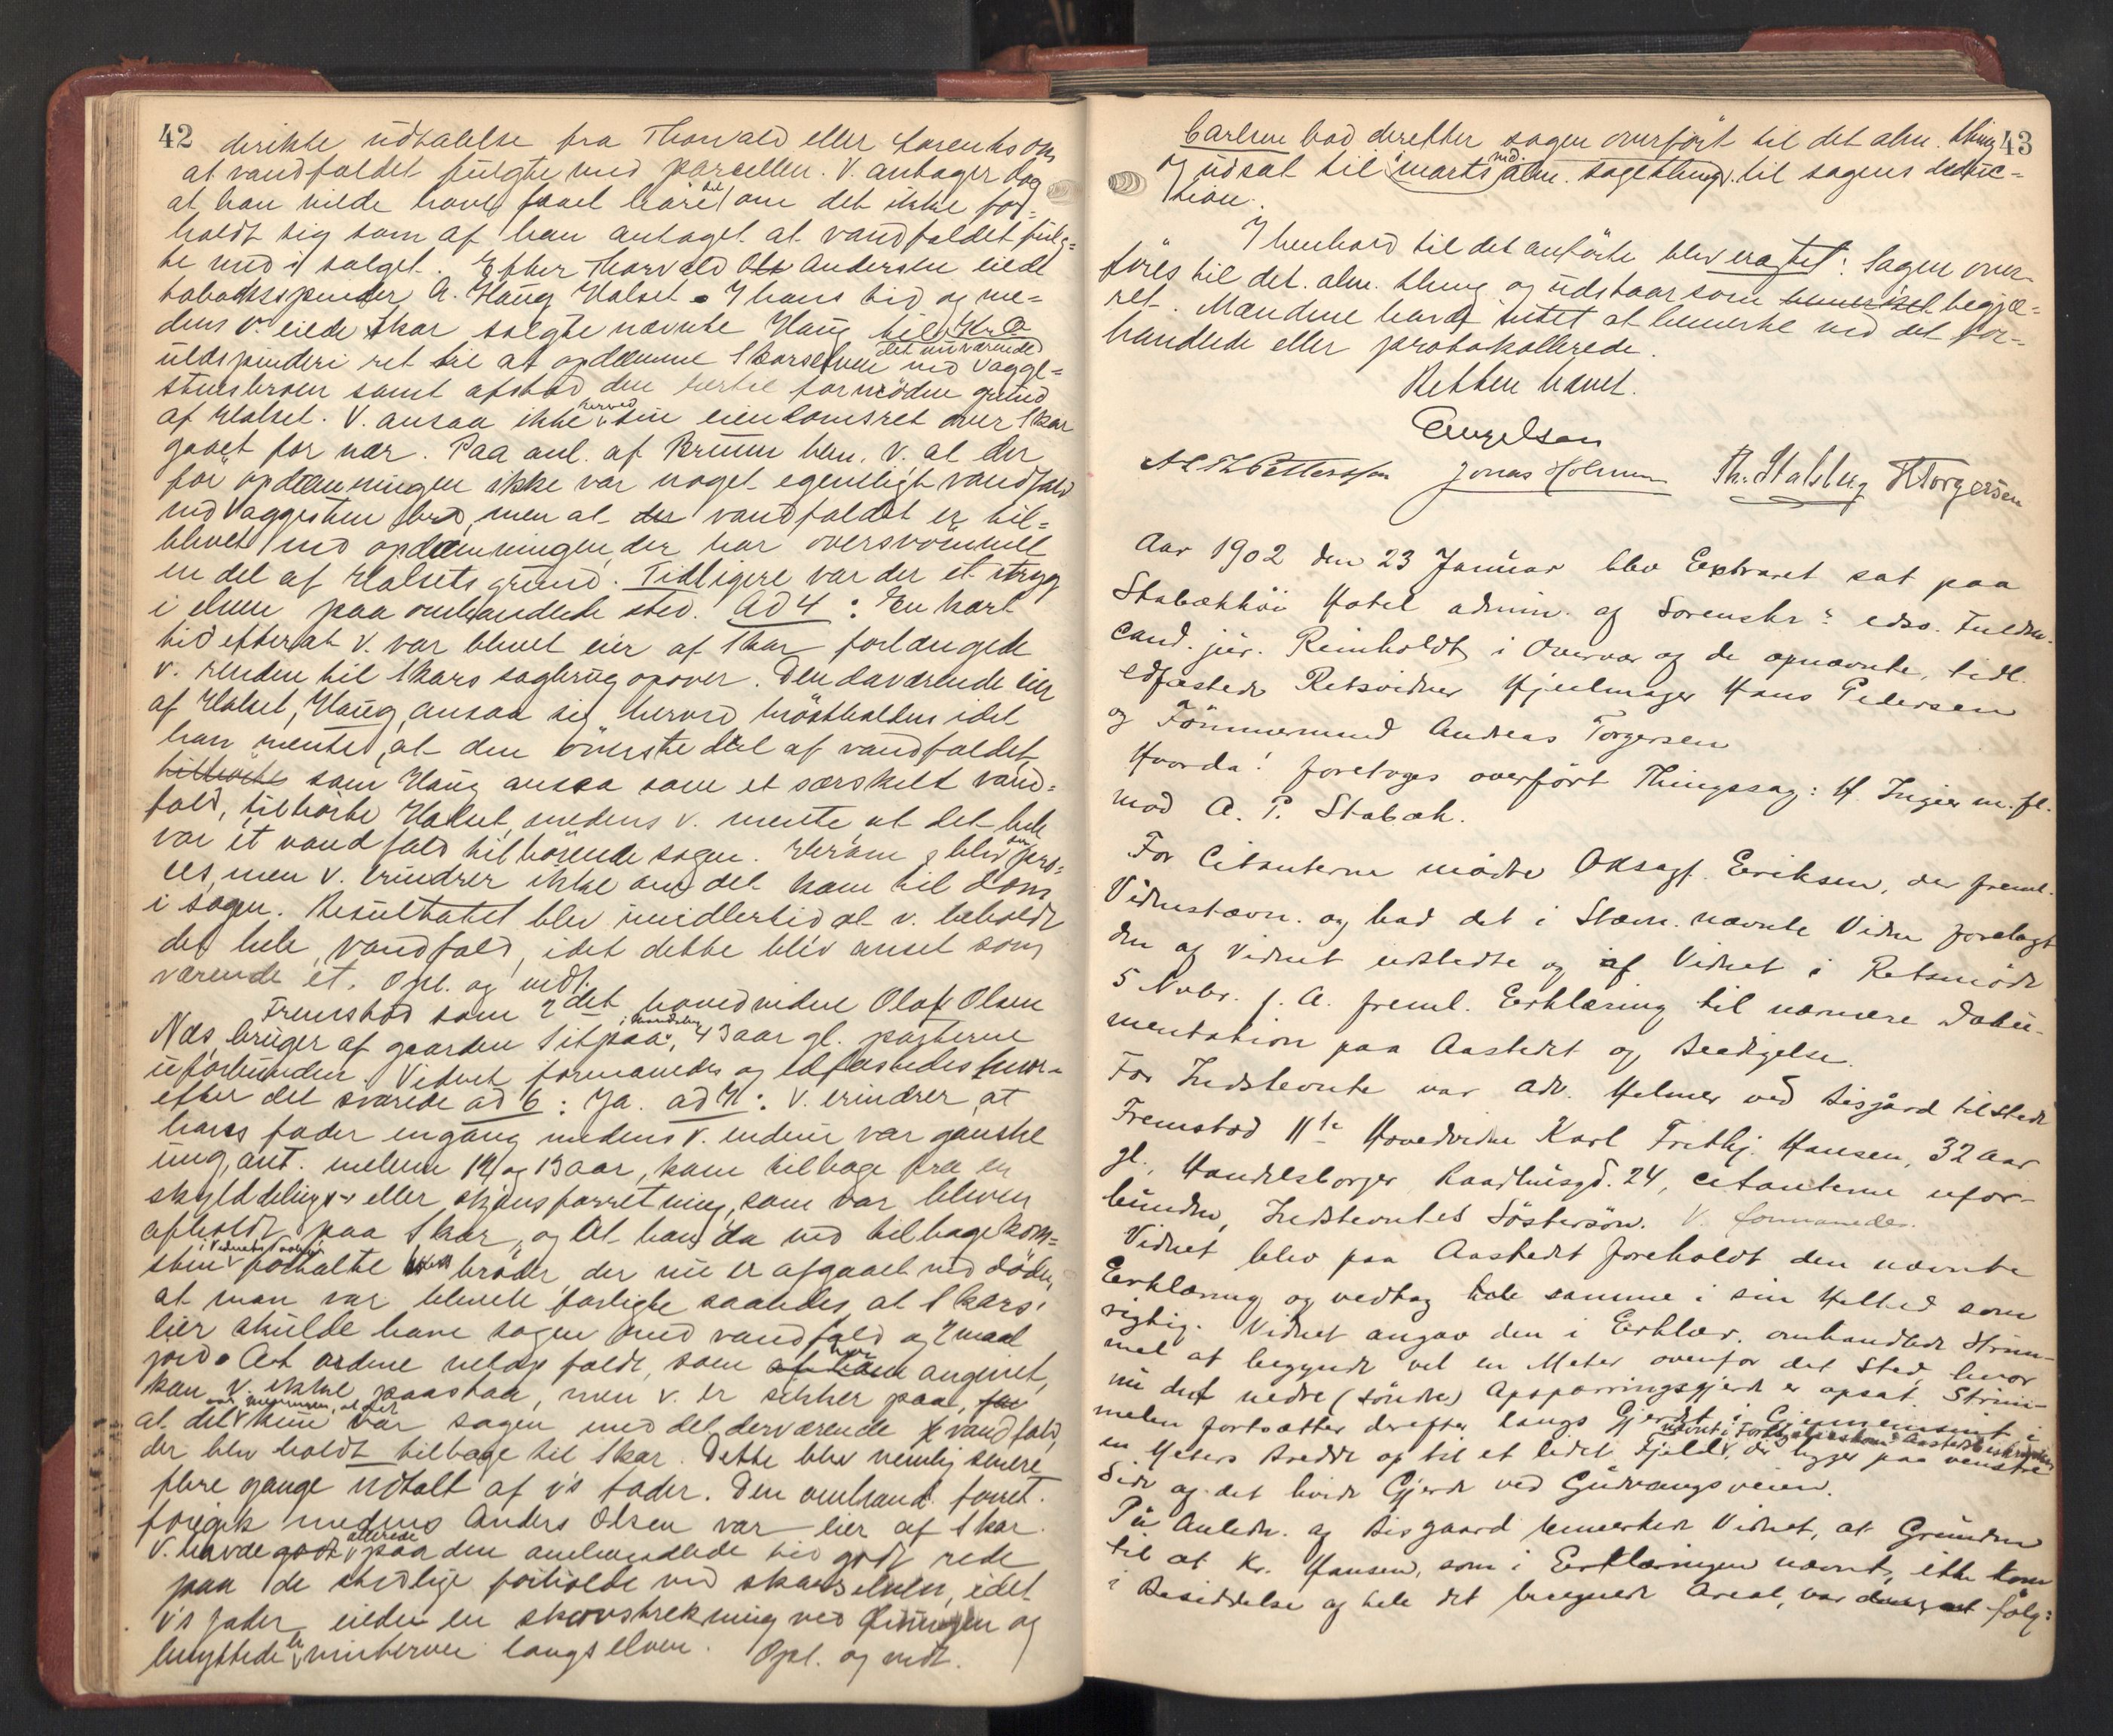 42
direkte udtalelse fra Thorvald eller Lorents om
at vandfaldet fulgte med parcellen. V. antager dog
at han vilde have faaet høre det om det ikke for-
holdt sig som af han antaget at vandfaldet fulg-
te med i salget. Efter Thorvald Ols Andersen eiede
tobaksspinder A. Haug Halset. I hans tid og me-
dens v. eiede Skar solgte nævnte Haug til
uldspinderi ret til at opdæmme Skarselven ved det nuværende Vagge-
stensbroen samt afstod den hertil fornødne grund
af Halset. V. ansaa ikke herved sin eiendomsret over Skar
gaaet for nær. Paa anl. af Bruun bem. v. at der
før opdæmningen ikke var noget egentligt vandfald
ved Vaggesten bro, men at der vandfaldet er til-
blevet ved opdæmningen, der har oversvømmet
en del af Halsets grund. Tidligere var der et stryg
i elven paa omhandlede sted. Ad 4: En kort
tid efterat v. var blevet eier af Skar forlængede
v. renden til Skars sagbrug opover. Den daværende eier
af Halset, Haug, ansaa sig herved brøstholden idet
han mente, at den øverste del af vandfaldet,
tilhørte som Haug ansaa som et særskilt vand-
fald, tilhørte Halset, medens v. mente at det hele
var ét vandfald tilhørende sagen. Herom blev der pro-
ces, men v. erindrer ikke om det kom til dom
i sagen. Resultatet blev imidlertid at v. beholdt
det hele vandfald, idet dette blev anset som
værende et. Opl. og vedt.
Fremstod som 2det hovedvidne Olaf Olsen
Næs, bruger af gaarden Sitpaa, i Strandeby, 43 aar gl. parterne
uforbunden. Vidnet formanedes og edfæstedes hvor-
efter det svarede ad 6: Ja. ad 7: V. erindrer, at
hans fader engang medens v. endnu var ganske
ung, ant. mellem 12 og 13 aar, kom tilbage fra en
skylddelings- eller skjønsforretning, som var bleven
afholdt paa Skar, og at han da ved tilbagekom-
sten i Vidnets paahør fortalte broder, der nu er afgaaet ved døden,
at man var blevet forligte saaledes, at Skars
eier skulde have sagen med vandfald og 2 maal
jord. At ordene netop faldt, som af ham her angivet,
kan v. ikke paastaa, men v. er sikker paa, for
at det var meningen, at det kun var sagen med det derværende vandfald,
der blev holdt tilbage til Skar. Dette blev nemlig senere
flere gange udtalt af v's fader. Den omhand. forret.
foregik medens Anders Olsen var eier af Skar.
V. havde godt allerede paa den omhandlede tid godt rede
paa de stedlige forholde ved skarselven, idet
v's fader eiede en skovstrekning ved og
benyttede vinterveie langs elven. Opl. og vedt.
43
Carlsen bad derefter sagen overført til det alm. thing
og udsat til marts md. alm. sagething til sagens deduc-
tion.
I henhold til det anførte blev eragtet: Sagen over-
føres til det alm. thing og udstaar som bemerket begjæ-
ret. Mændene havde intet at bemerke ved det for-
handlede eller protokollerede.
Retten hævet.
Engelsen
Pettersen Jonas Holmen Th. Stalsberg H Torgersen
Aar 1902 den 23 Januar blev Extraret sat paa
Stabækhøi Hotel admin. af Sorenskr.s edsv. Fuldm.
cand. jur. Reinholdt i Overvær og de opnævnte, tidl.
edfæstede Retsvidner Hjulmager Hans Pedersen
og Tømmermand Andreas Torgersen
Hvorda: foretoges overført Thingssag: H. Ingier m. fl.
mod A. P. Stabæk.
For Citanterne mødte Oksagf. Eriksen, der freml.
Vidnestævn. og bad det i Stævn. nævnte Vidne forelagt
den af Vidnet udstedte og af Vidnet i Retsmøde
5 Novbr. f. A. freml. Erklæring til nærmere Doku-
mentation paa Aastedet og Beedigelse.
For Indstevnte var adv. Helmer ved Bisgård tilstede
Fremstod 11te Hovedvidne Karl Frithj. Hansen, 32 aar
gl., Handelsborger Raadhusgd. 24, citanterne ufor-
bunden, Indstevntes Søstersøn. V. formanedes.
Vidnet blev paa Aastedet foreholdt den nævnte
Erklæring og vedtog hele samme i sin Helhed som
rigtig. Vidnet angav den i Erklær. omhandlede Strim-
mel at begynde vel en Meter ovenfor det Sted, hvor
nu det nedre (søndre) Afsparringsgjerde er opsat. Strim-
melen fortsætter derefter langs Gjerdet i Gjennemsnit i
en Meters Bredde op til et lidet Fjeld, der ligger paa venstre
Side af det hvide Gjerde ved Gudvangsveien.
På Anledn. af Bisgaard bemerkede Vidnet, at Grunden
til at Kr. Hansen, som i Erklæringen nævnt, ikke kom
i Besiddelse af hele det beregnede Areal, var følg: